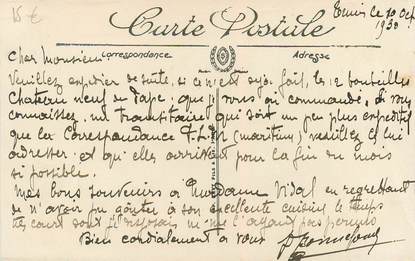 15 €
Tunis le 10 Oct
1930
Carte Postale
Correspondance
Adresse
Cher Monsieur
Veuillez expédier de suite, si ce n'est déjà fait, les 12 bouteilles
Chateau neuf du Pape, que je vous ai commandé, si vous
connaissez un transitaire qui soit un peu plus expéditif
que les Correspondance (maritime) veuillez le lui
adresser et qu'elles arrivent pour la fin du mois
si possible.
Mes bons souvenirs à Madame Vidal en regrettant
de n'avoir pu goûter à son excellente cuisine le temps
très court dont je disposais ne me l'ayant pas permis
Bien cordialement à vous